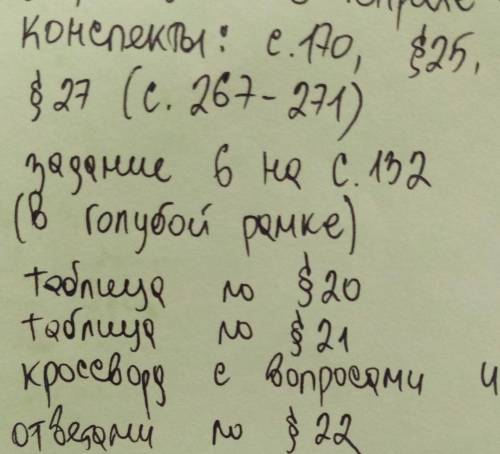 конспекты: с.170, §25,
§27 (с. 267-271)
задание 6 на с.132
(в голубой рамке)
таблица по §20
таблица по §21
кроссворд с вопросами и
ответами по §22